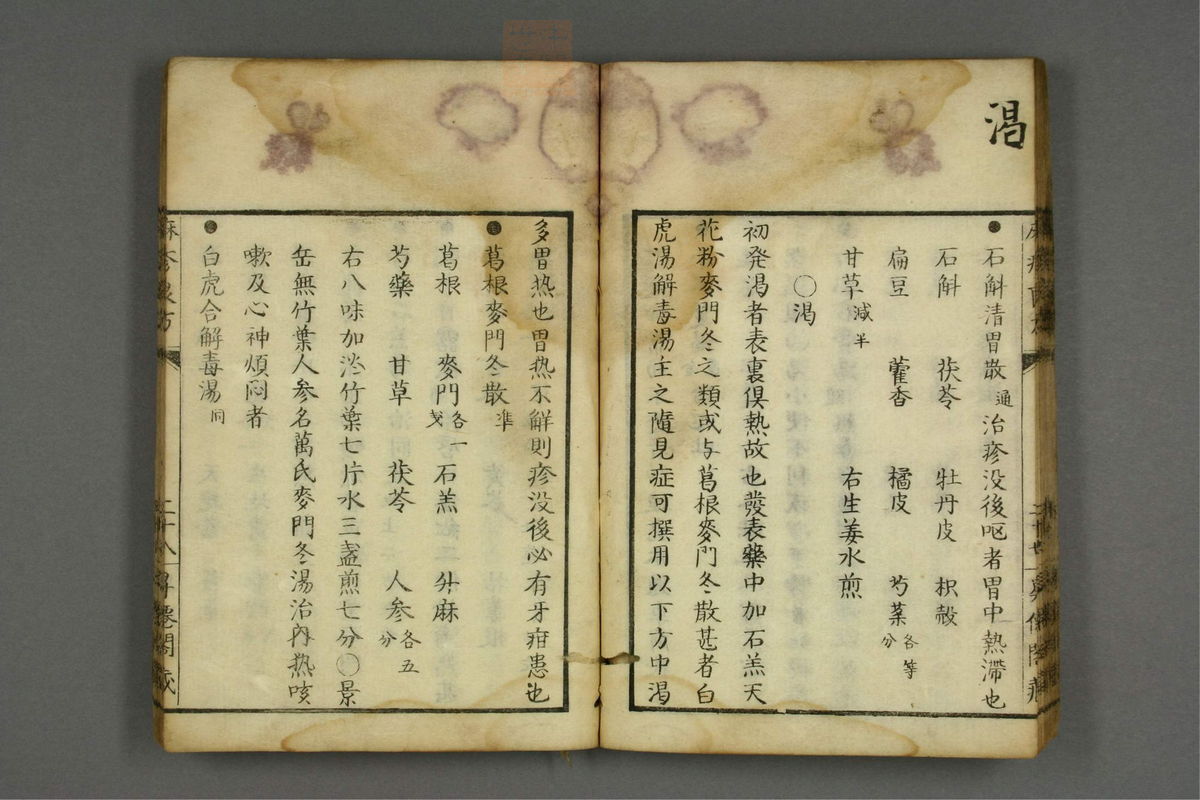 渇
●石斛清胃散通治疹没後呕者胃中熱滞也
石斛 茯苓 牡丹皮 枳殻
扁豆 藿香 橘皮 芍薬各等分
甘草減半 右生姜水煎
○渇
初発渇者表裏倶熱故也發表藥中加石羔天
花粉麥門冬之類或与葛根麥門冬散甚者白
虎湯解毒湯主之隨見症可撰用以下方中渇
多胃热也胃热不觧則疹没後必有牙疳患也
葛根麥門冬散準
葛根 麥門各一戈 石羔 升麻
芍藥 甘草 茯苓 人参各五分
右八味加淡竹葉七片水三盞煎七分○景
岳無竹葉人参名萬氏麥門冬湯治內热咳
嗽及心神煩悶者
●白虎合解毒湯同
二十八